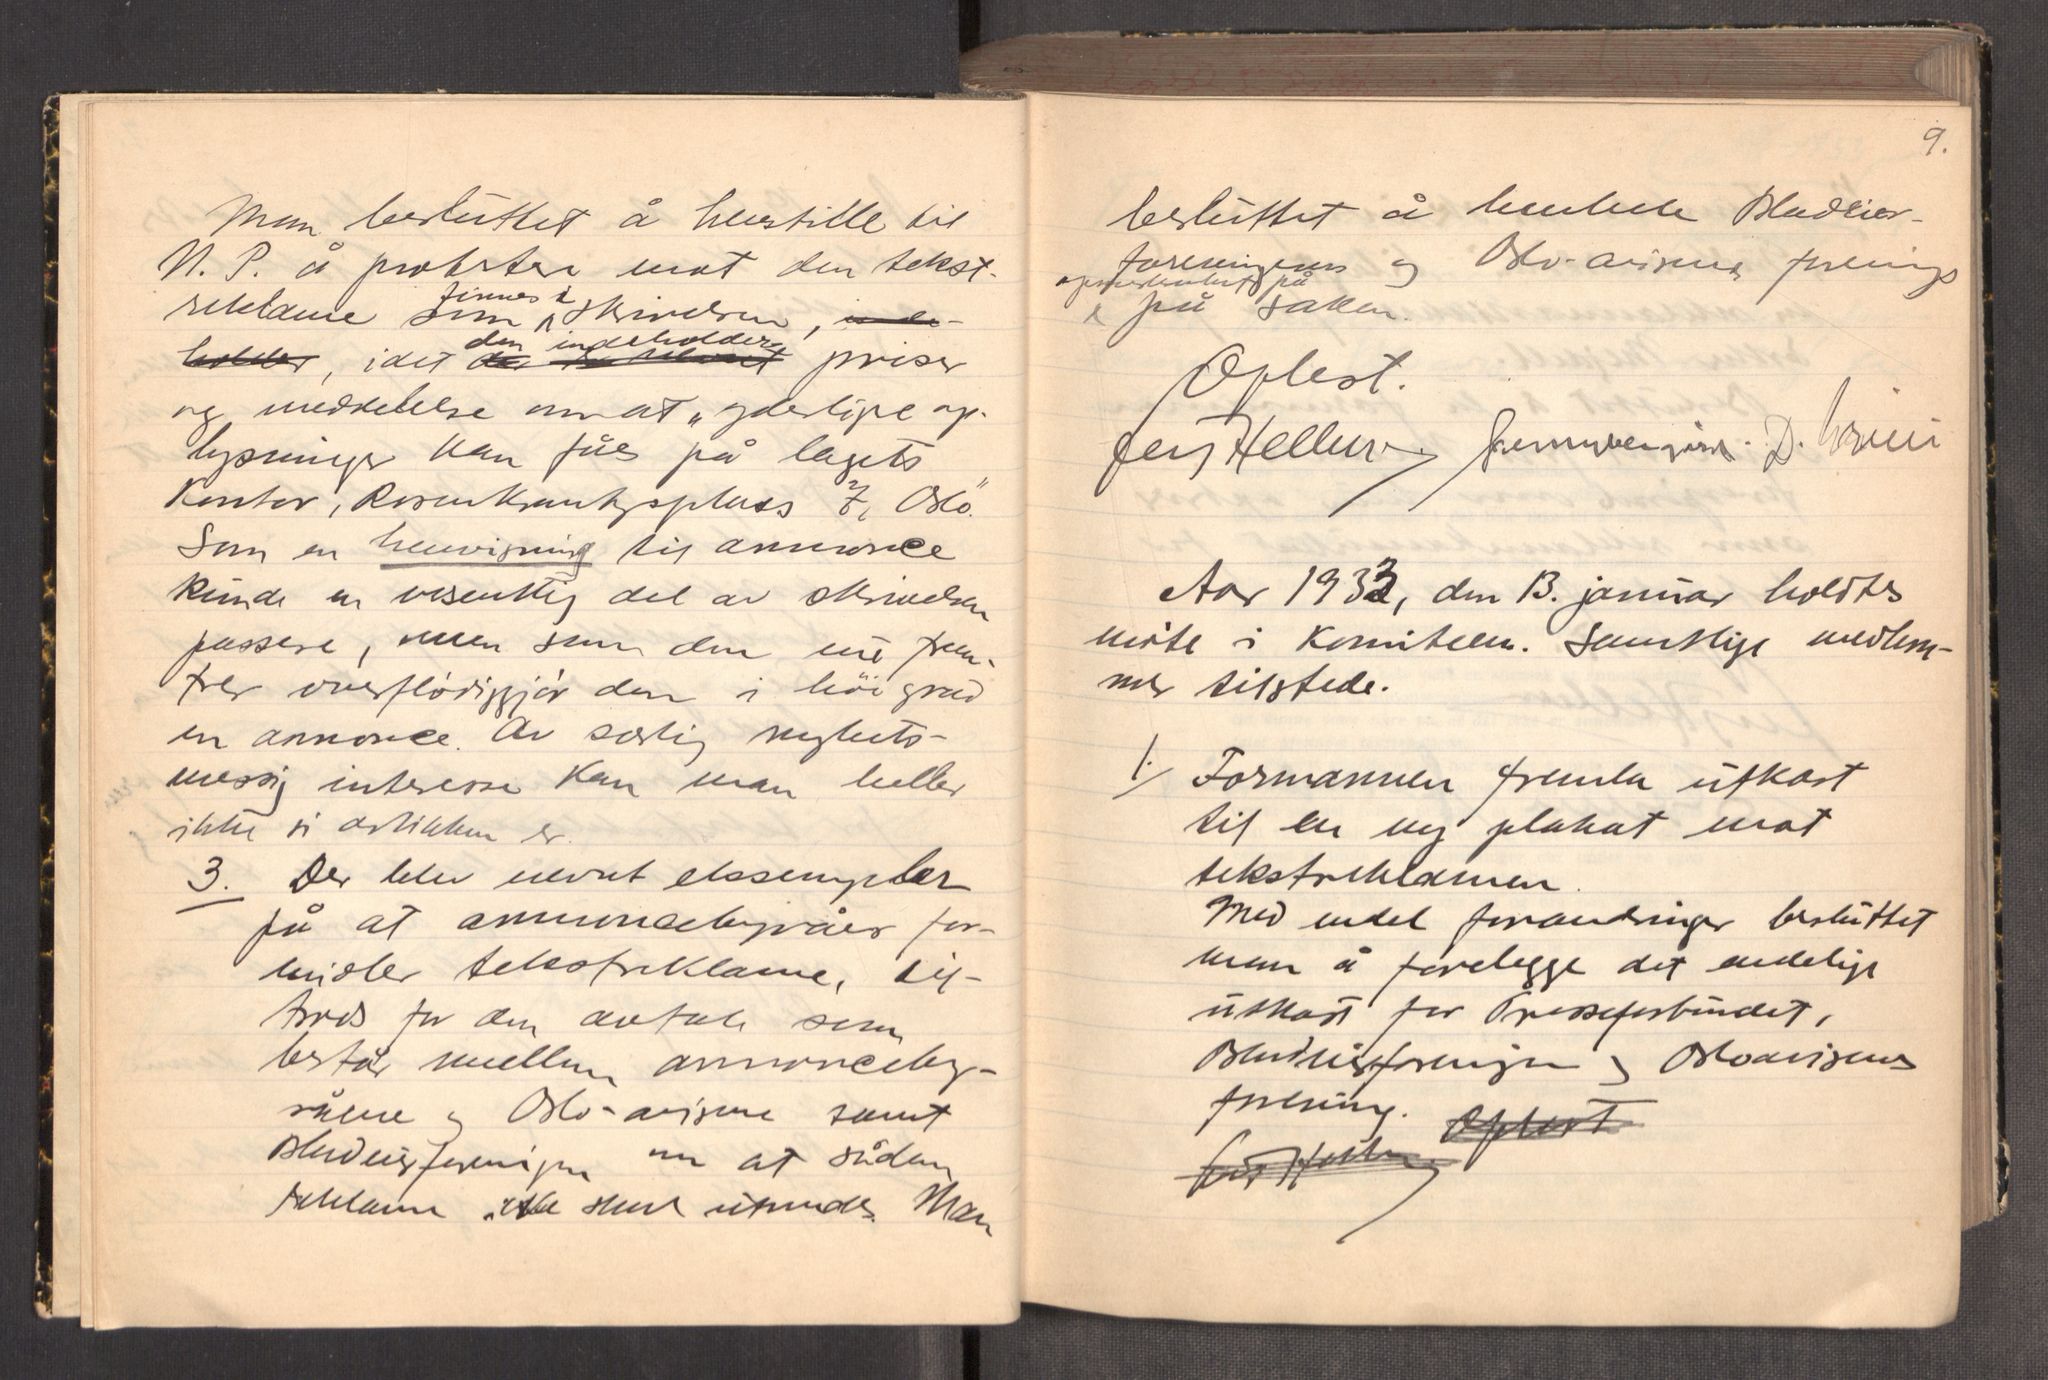 Man besluttet å henstille til
N. P. å protestere mot den tekst-
reklame som finnes i skrivelsen, inde-
holder, idet den indeholder priser
og meddelelse om at „yderlige op-
lysninger kan fåes på lagets
kontor, Rosenkrantzsplass 7, Oslo."
Som en henvisning til annonce
kunde en vesentlig del av skrivelsen
passere, men som den nu frem-
trer overflødiggjør den i høi grad
en annonce. Av særlig nyhets-
messig interesse kan man heller
ikke si artikken er.
3. Der blev nevnt eksempler
på at annoncebyråer for-
midler tekstreklame, til-
trods for den avtale som
består mellem annonceby-
råene og Oslo-avisene samt
Bladeierforeningen om at sådan
reklame ikke skal utsendes. Man
9.
besluttet å henlede Bladeier-
foreningens og Oslo-avisenes forenings
opmerksomhet på
på saken.
Oplest.
Aar 1933, den 13. januar holdtes
møte i komiteen. Samtlige medlem-
mer tilstede.
1. Formannen fremla utkast
til en ny plakat mot
tekstreklamen.
Med endel forandringer besluttet
man å forelegge det endelige
utkast for Presseforbundet,
Bladeierforeningen og Osloavisenes
forening. Oplest